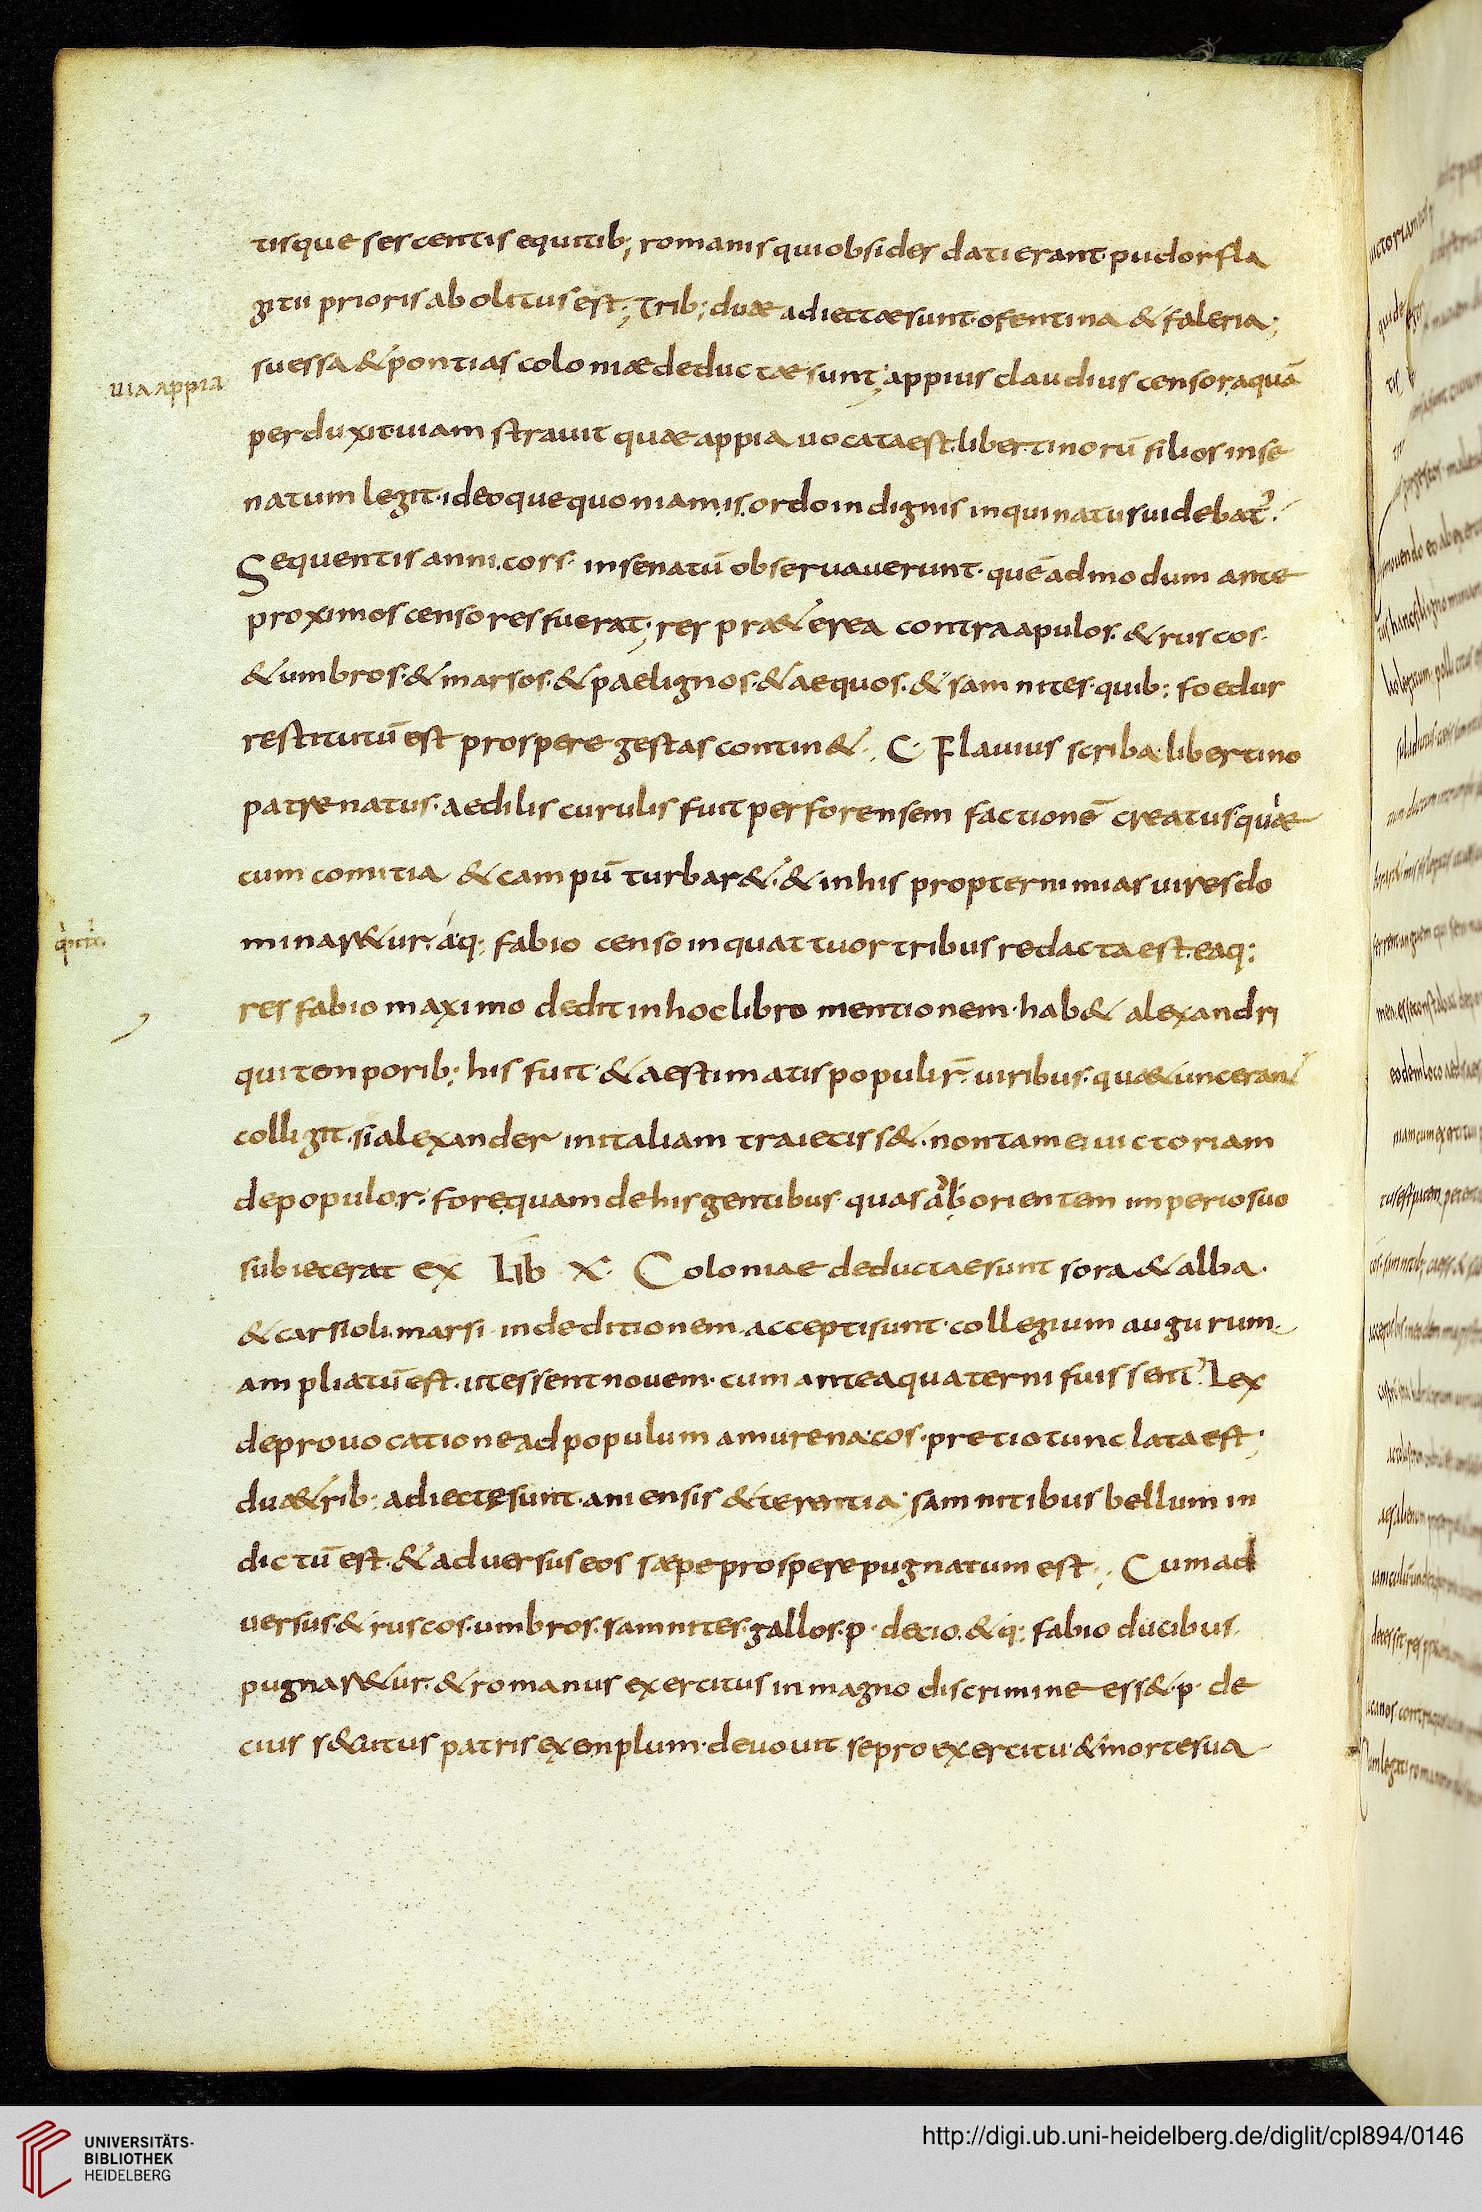 tisque sescentis equitib; romanis qui obsides dati erant· pudor fla
gitii prioris abolitus est; Trib; duæ adiectæ sunt· ofentina & faleria;
uia appia
suessa & pontias coloniæ deductæ sunt; appius claudius censor aquā
perduxit· uiam strauit quæ appia uocata est· libertinorū filios in se
natum legit· ideoque quoniam is ordo indignis inquinatus uidebat᷑·
Sequentis anni· coss· in senatū obseruauerunt· quēadmodum ante
proximos censores fuerat; res præ&erea contra apulos· & ruscos·
& umbros· & marsos· & paelignos· & aequos· & samnites· quib; foedus
restitutū est prospere gestas contin&· C· Flauius scriba· libertino
patre natus· aedilis curulis fuit per forensem factionē creatus· quæ
cum comitia & campū turbar&· & in his propter nimias uires do
minar&ur· aq; fabio censo in quattuor tribus redacta est· eaq;
res fabio maximo dedit in hoc libro mentionem· hab& alexandri
qui temporib; his fuit· & aestimatis populi r̄· uiribus· quæ tunc erant
colligit· si alexander in italiam traieciss&· non tam ei uictoriam
de populo r· fore quam de his gentibus quas ab orientem imperio suo
subiecerat ex Lib X· Coloniae deductae sunt sora & alba·
& carsioli· marsi in deditionem accepti sunt· collegium augurum·
ampliatū est· ut essent nouem· cum antea quaterni fuissent· Lex
de prouocatione ad populum a murena· cos· pretio tunc lata est;
duæ trib; adiectę sunt· aniensis & terentia; samnitibus bellum in
dictū est· & aduersus eos sæpe prospere pugnatum est·, Cum ad
uersus· & ruscos· umbros· samnites· gallos· p· decio· & q; fabio ducibus·
pugnar&ur· & romanus exercitus in magno discrimine ess&· p· de
cius s&cutus patris exemplum· deuouit se pro exercitu· & morte sua
UNIVERSITÄTS-
BIBLIOTHEK
HEIDELBERG
http://digi.ub.uni-heidelberg.de/diglit/cpl894/0146